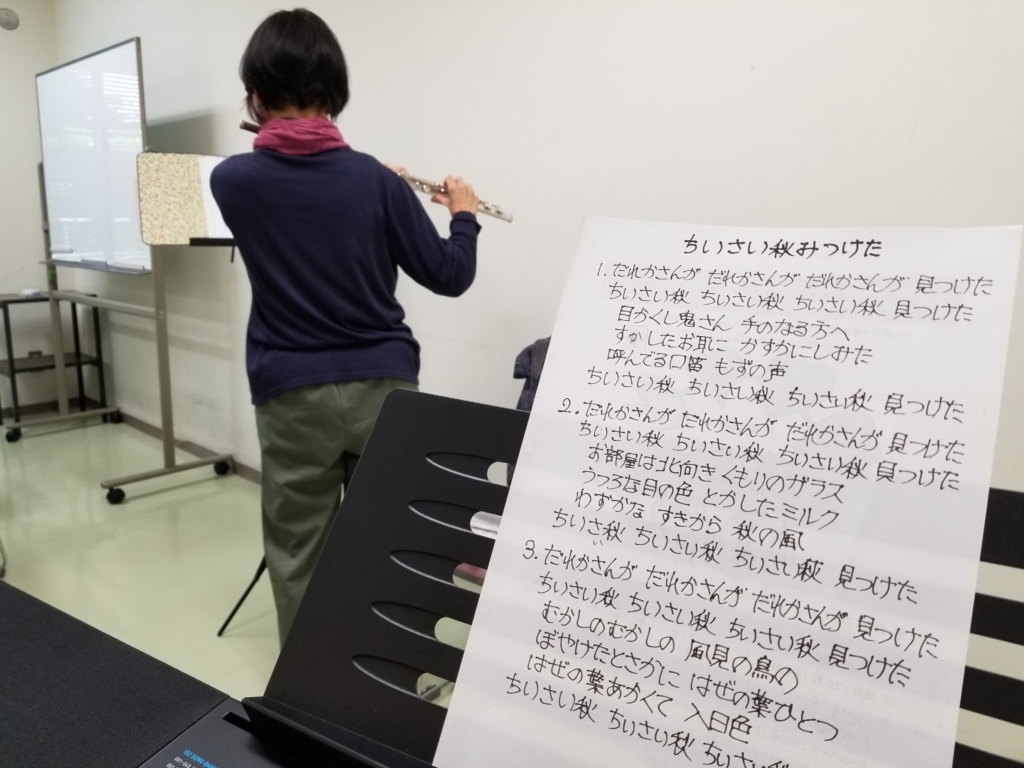 ちいさい秋みつけた
1. だれかさんが だれかさんが だれかさんが 見つけた
ちいさい秋 ちいさい秋 ちいさい秋 見つけた
目かくし鬼さん 手のなる方へ
すましたお耳に かすかにしみた
呼んでる口笛 もずの声
ちいさい秋 ちいさい秋 ちいさい秋 見つけた
2. だれかさんが だれかさんが だれかさんが 見つけた
ちいさい秋 ちいさい秋 ちいさい秋 見つけた
お部屋は北向き くもりのガラス
うつろな目の色 とかしたミルク
わずかな すきから 秋の風
ちいさい秋 ちいさい秋 ちいさい秋 見つけた
3. だれかさんが だれかさんが だれかさんが 見つけた
ちいさい秋 ちいさい秋 ちいさい秋 見つけた
むかしのむかしの 風見の鳥の
ぼやけたとさかに はぜの葉ひとつ
はぜの葉あかくて 入日色
ちいさい秋 ちいさい秋 ちいさい